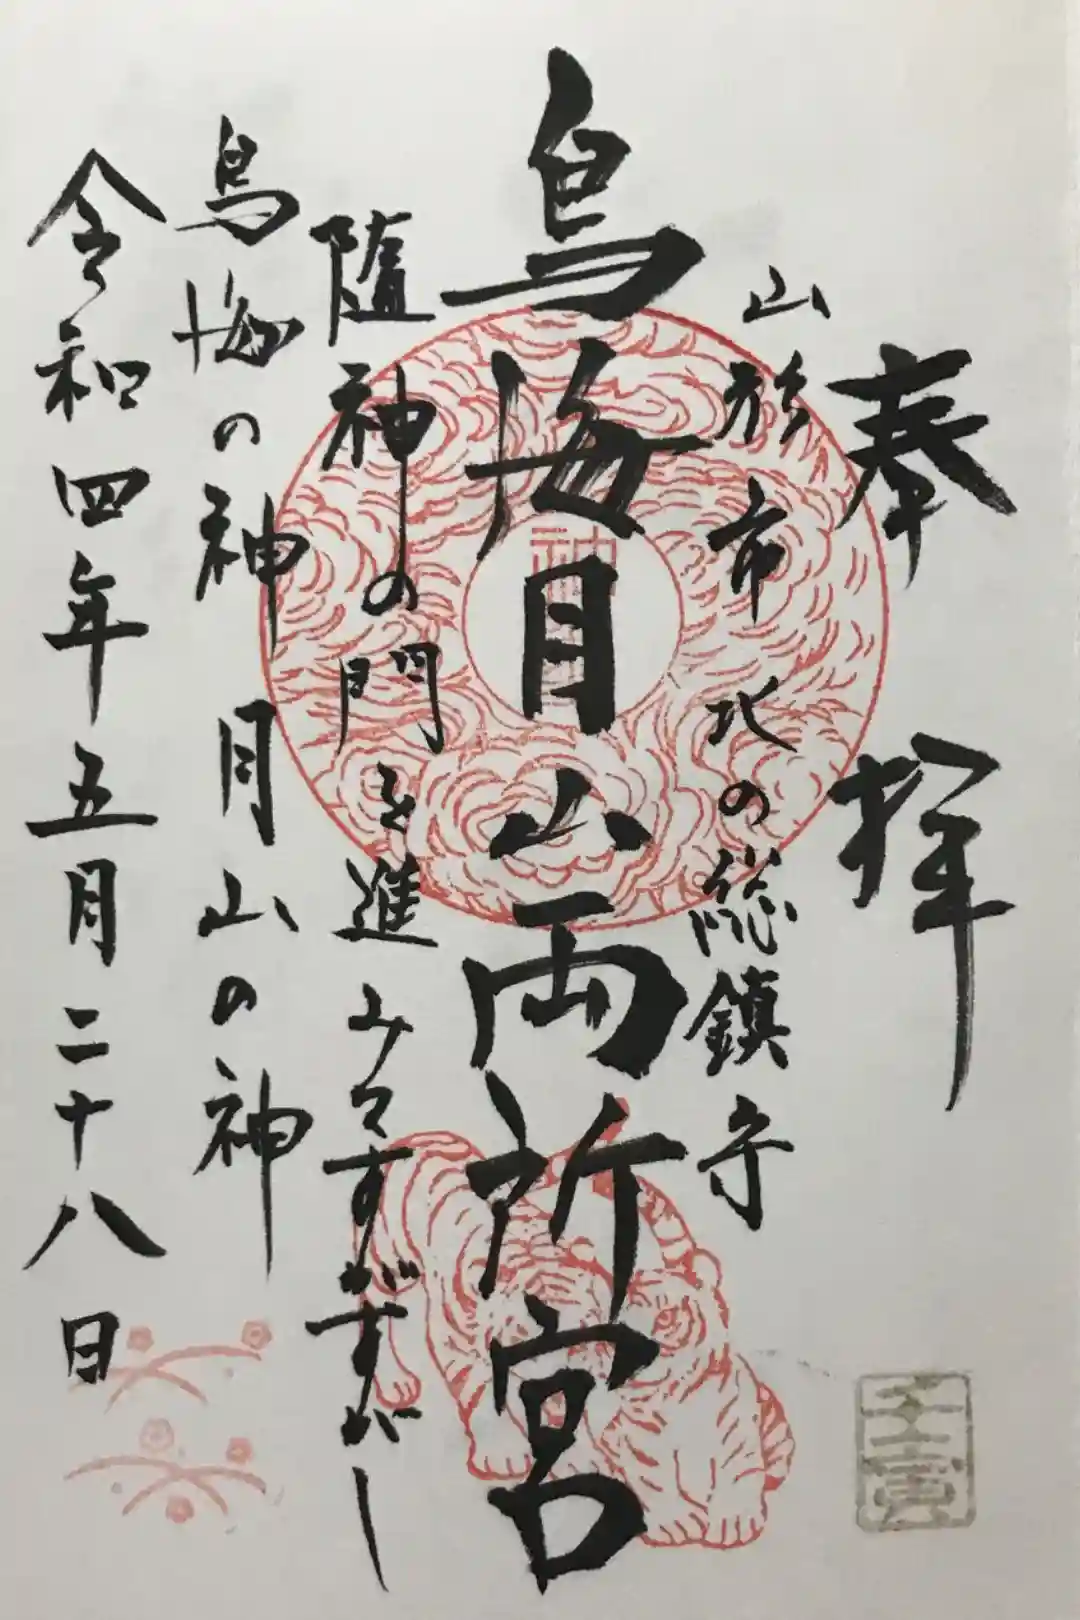 奉拝
山形市北の総鎮守
鳥海月山両所宮
随神の門を進みてすがすがし
鳥海の神月山の神
令和四年五月二十八日
壬寅
神